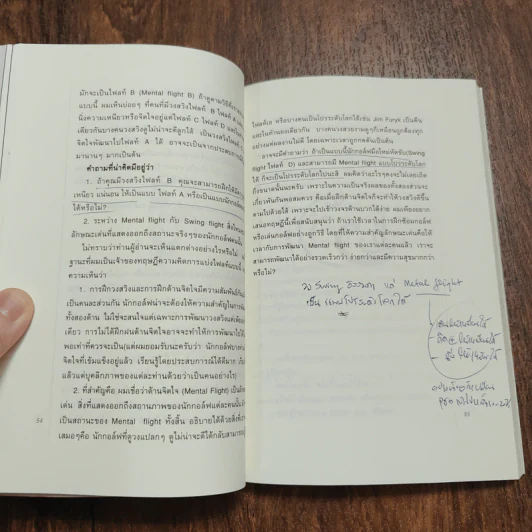 มักจะเป็นไฟลท์ B (Mental flight B) ถ้าดูตามวิธีที่
แบบนี้ ผมเห็นบ่อยๆ ที่คนที่มีวงสวิงไฟลท์ B ไฟลท์ A
นิ่งความเหนียวหรือจิตใจอยู่แค่ไฟลท์ C ไฟลท์ D
เดียวกันบางคนวงสวิงดูไม่น่าจะตีลูกได้ เป็นวงสวิง
จิตใจพัฒนาไปไฟลท์ A ได้ อาจจะเป็นจากประสบการณ์
มานานๆ มากเป็นต้น
คำถามที่น่าคิดมีอยู่ว่า
1. ถ้าคุณมีวงสวิงไฟลท์ B คุณจะสามารถฝึกให้
เหนียว แน่นอน ให้เป็นแบบ ไฟลท์ A หรือเป็นแบบนัก
ได้หรือไม่?
2. ระหว่าง Mental flight กับ Swing flight สิ่งไหน
ลักษณะเด่นที่แสดงออกถึงสถานะจริงๆของนักกอล์ฟคนนั้น
ไม่ทราบว่าท่านผู้อ่านจะเห็นแตกต่างอย่างไรหรือไม่
ฐานะที่ผมเป็นเจ้าของทฤษฎีความคิดการแบ่งไฟลท์แบบนี้
ความเห็นว่า
1. การฝึกวงสวิงและการฝึกด้านจิตใจมีความสัมพันธ์กัน
เป็นคนละส่วนกัน นักกอล์ฟน่าจะต้องให้ความสำคัญในการ
ทั้งสองด้าน ไม่ใช่สนใจแต่เฉพาะการพัฒนาวงสวิงแต่เพียง
เดียว การไม่ได้ฝึกฝนด้านจิตใจอาจจะทำให้การพัฒนาไป
พอเท่าที่ควรจะเป็น(แต่ผมยอมรับนะครับว่า นักกอล์ฟบาง
จิตใจที่เข้มแข็งอยู่แล้ว เรียนรู้โดยประสบการณ์ได้ดีมาก
แล้วแต่บุคลิกภาพของแต่ละท่านด้วยว่าเป็นคนอย่างไร)
2. ที่สำคัญคือ ผมเชื่อว่าด้านจิตใจ (Mental Flight) เป็น
เด่น สิ่งที่แสดงออกถึงสถานภาพของนักกอล์ฟแต่ละคนนั้น
เป็นสถานะของ Mental flight ทั้งสิ้น อธิบายได้ด้วยสิ่งที่
เสมอๆคือ นักกอล์ฟที่ดูวงแปลกๆ ดูไม่น่าจะตีได้กลับสามารถ
54
ไฟลท์เอ หรือบางคนเป็นโปรระดับโลกได้เช่น Jim Furyk เป็นต้น
และในทำนองเดียวกัน บางคนวงสวยงามดูๆก็เหมือนถูกต้องทุก
อย่างแต่ผลงานไม่ดี โดยเฉพาะเวลาถูกกดดันเป็นต้น
อาจจะมีคำถามว่า ถ้าเป็นแบบนี้นักกอล์ฟมือใหม่หัดขับ(Swing
flight D) และสามารถมี Mental flight แบบโปรระดับโลก
ได้ ก็จะเป็นโปรระดับโลกไปนะสิ ผมคิดว่าอะไรๆคงจะไม่เลยเถิด
ถึงขนาดนั้นนะครับ เพราะในความเป็นจริงผลของทั้งสองส่วนจะ
เกี่ยวพันกันพอสมควร คือเมื่อฝึกด้านจิตใจก็จะทำให้วงสวิงดีขึ้น
ตามไปด้วยได้ เพราะจะไปเข้าวงจรด้านบวกได้ง่าย ผมเพียงอยาก
เสนอทฤษฎีนี้เพื่อสนับสนุนว่า ถ้าเราใช้เวลาในการฝึกซ้อมกอล์ฟ
หรือเล่นกอล์ฟอย่างถูกวิธี โดยที่ให้ความสำคัญลักษณะเด่นคือให้
เวลากับการพัฒนา Mental flight ของเราแต่ละคนแล้ว เราจะ
สามารถพัฒนาได้อย่างรวดเร็วกว่า ง่ายกว่าและมีความสุขมากกว่า
หรือไม่?
Swing ธรรมดา แต่ Mental flight
เป็น แบบโปรระดับโลกได้
55